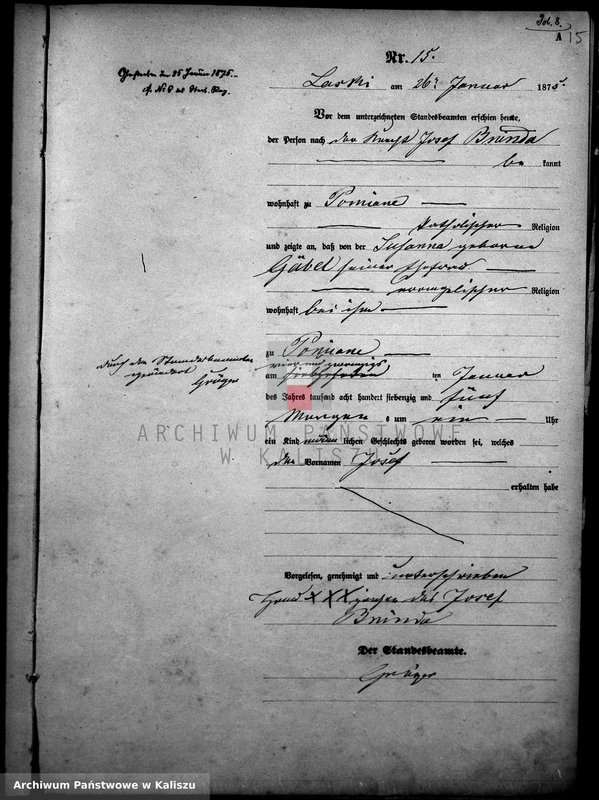 Fol. 8.
A 15
Nr. 15.
Gestorben den 25 Januar 1875.
cf. No 8 des Sterb. Reg.
Laski am 26. Januar 1875.
Vor dem unterzeichneten Standesbeamten erschien heute,
der Person nach der Knecht Josef Brinda
be kannt
wohnhaft zu Pomiane
katholischer Religion
und zeigte an, daß von der Susanna geborne
Gäbel seiner Ehefrau
evangelischer Religion
wohnhaft bei ihm
zu Pomiane
durch den Standesbeamten
geändert
Grüger
vier und zwanzigs
am ten Januar
des Jahres tausend acht hundert siebenzig und fünf
Morgen s um ein Uhr
ein Kind männ lichen Geschlechts geboren worden sei, welches
den Vornamen Josef
erhalten habe
Vorgelesen, genehmigt und unterschrieben
Hand XXX zeichen des Josef
Brinda
Der Standesbeamte.
Grüger
ARCHIWUM PAŃSTWOWE
W KALISZU
Archiwum Państwowe w Kaliszu